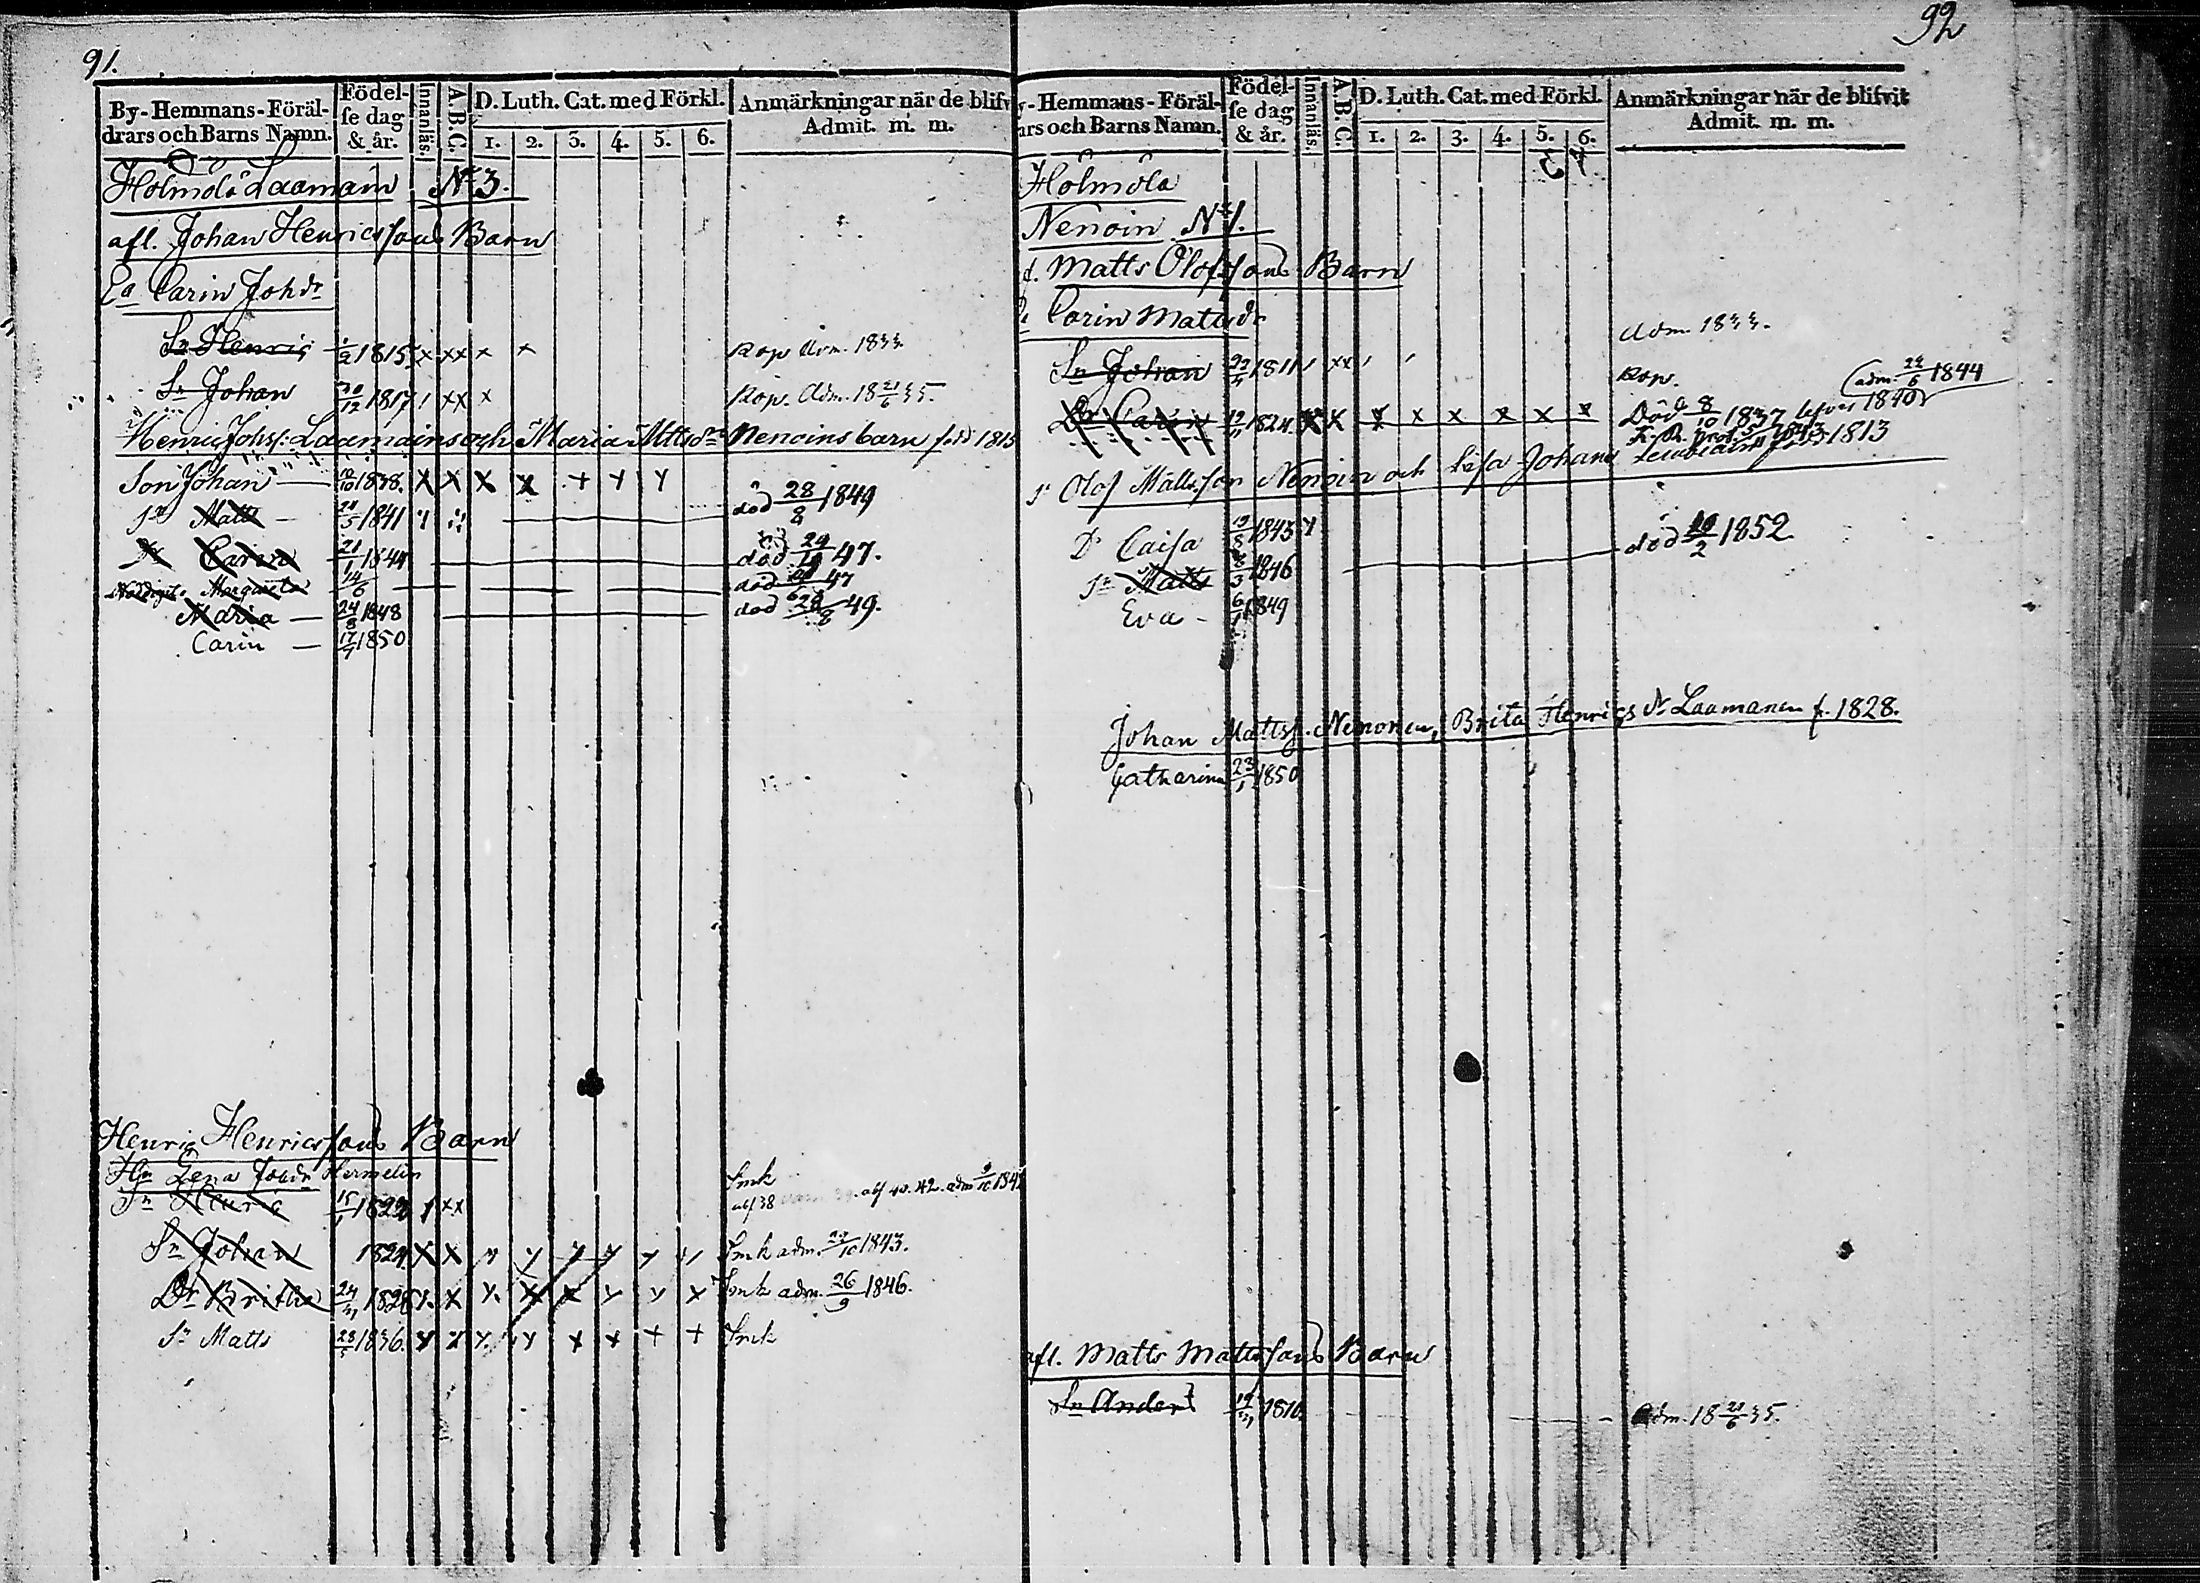 91.
By-Hemmans-Föräl-
drars och Barns Namn.
Födel-
se dag
& år.
Innanläs.
A.B.C.
D. Luth. Cat. med Förkl.
1. 2. 3. 4. 5. 6.
Anmärkningar när de blifv
Admit. m. m.
Holmölä Laamain N: 3.
afl. Johan Henricssons Barn
Ea Carin Johdr
Sn Henric 1/2 1815 x xx x x Kop. Adm. 1833.
Sn Johan 30/12 1817 / xx x Kop. Adm. 18 21/6 35.
Henric Johss: Laamains och Maria Mttsdr Nenoins barn född 1815
Son Johan 10/10 1838. X X X X + Y Y
Sn Matts 21/5 1841 död 28/8 1849
Dr Carin 21/1 1844 död 29/10 47.
Margareta 14/6 död 47
Maria 24/8 1848 död 28/8 49.
Carin 17/7 1850
Henric Henricssons Barn
Hu Lena Johdr Hermelin
Sn Henric 15/1 1822 / xx Smk
abs 38 abs 40. 42. adm 9/10 184
Sn Johan 1824 X X Smk adm. 29/10 1843.
Dr Britha 24/3 1828 X Smk adm. 26/9 1846.
Sn Matts 23/5 1836. Smk
92
-Hemmans-Föräl-
ars och Barns Namn.
Födel-
se dag
& år.
Innanläs.
A.B.C.
D. Luth. Cat. med Förkl.
1. 2. 3. 4. 5. 6.
Anmärkningar när de blifvit
Admit. m. m.
Holmölä
Nenoin N: 1.
f. Matts Olofssons Barn
Carin Mattsdr
Adm. 1833.
Sn Johan 22/4 1811 / xx / / Kop. (adm. 24/6 1844
Dr Carin 12/11 1824. X X X x x x x x Död 8/10 1837 lefver 1840
K. R. prot. 5/7 1843
Sn Olof Mattsson Nenoin och Lisa Johans 1813
Dr Caisa 19/8 1843 Y
Sn Matts 8/3 1846 död 20/2 1852.
Eva - 6/1 1849
Johan Mattss. Nenonen, Brita Henrics dr Laamanen f. 1828.
Catharina 23/1 1850
afl. Matts Mattssons Barn
Sn Anders 19/3 1816. Adm. 18 21/6 35.